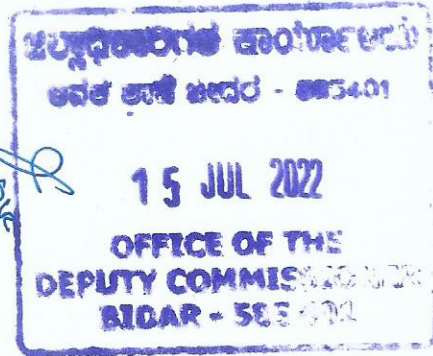 ಜಿಲ್ಲಾಧಿಕಾರಿಗಳ ಕಾರ್ಯಾಲಯ
ಆವಕ ಶಾಖೆ ಬೀದರ - 585401
15 JUL 2022
OFFICE OF THE
DEPUTY COMMISSIONER
BIDAR - 585 401